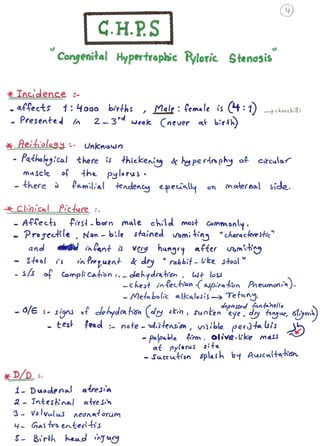 4
C.H.P.S
"Congenital Hypertrophic Pyloric Stenosis"
* Incidence :-
- affects 1:4000 births , Male : female is (4:1)
- Presented in 2-3rd week (never at birth)
* Aeitiology :- Unknown
- Pathological there is thickening & hypertrophy of circular
muscle of the pylorus.
- there is familial tendency especially on maternal side.
* Clinical Picture :-
- Affects first-born male child most commonly.
- Projectile, Non-bile stained vomiting "characterestic"
and infant is very hungry after vomiting
- Stool is infrequent & dry "rabbit-like stool"
- s/s of complication :- - dehydration, wt loss
- chest infection (aspiration Pneumonia).
- Metabolic alkalosis → Tetany.
depressed fontanelle
- O/E :- signs of dehydration (dry skin, sunken eye, dry tongue, oliguria)
- test feed :- note - distension, visible peristalsis
- palpable firm. olive-like mass
at pylorus site
- succution splash by Auscultation
* D/D :-
1- Duodenal atresia
2- Intestinal atresia
3- Volvulus neonatorum
4- Gastroenteritis
5- Birth head injury